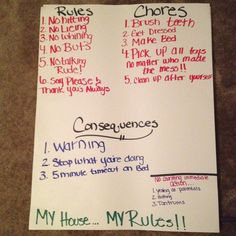 Rules
1. No hitting
2. No Lieing
3. No Whining
4. No Buts
5. No talking
Rude!
6. Say Please &
Thank you's Always
Chores
1. Brush teeth
2. Get Dressed
3. Make Bed
4. Pick up all toys
no matter who made
the mess!!
5. Clean up after yourself
Consequences
1. Warning
2. Stop what you're doing
3. 5 minute timeout on Bed
No warning immediate
action...
1. yelling at parents
2. Hitting
3. Tantrums
MY House... MY Rules!!